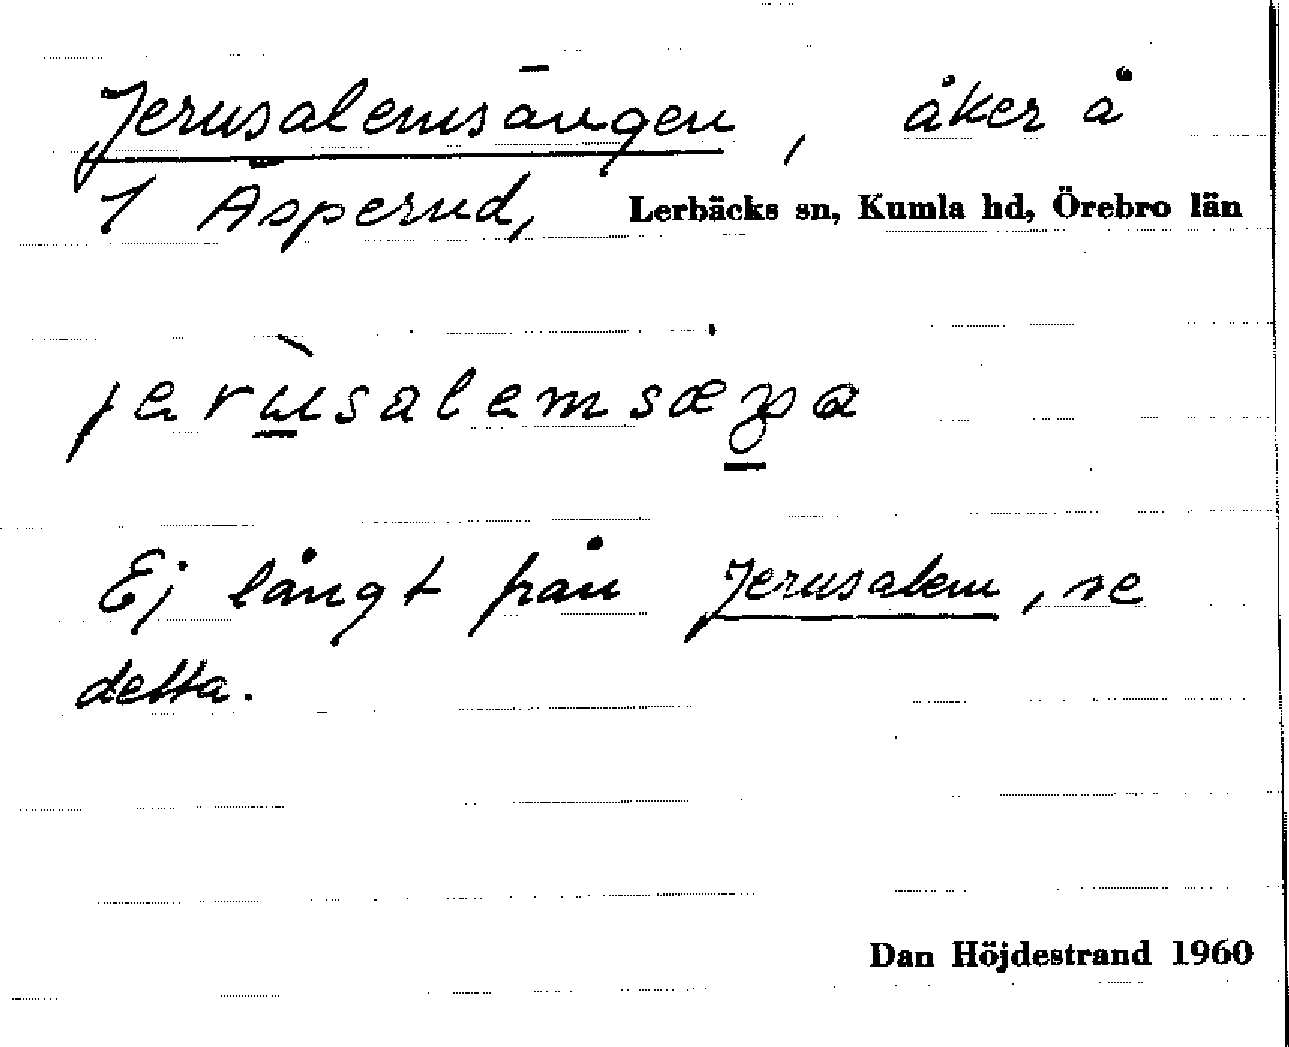 Jerusalemsängen, åker å
1 Äsperud, Lerbäcks sn, Kumla hd, Örebro län
Ej långt från Jerusalem, se
detta.
Dan Höjdestrand 1960